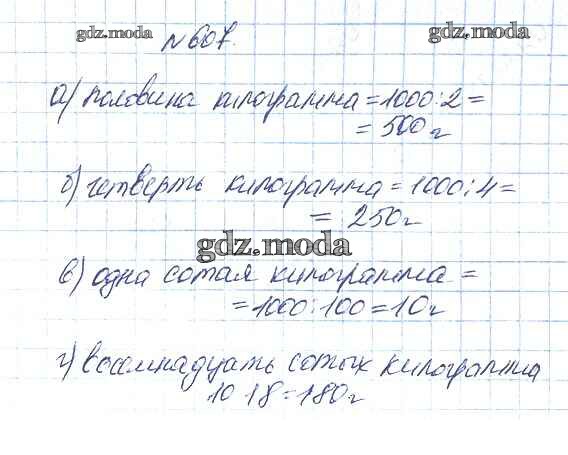 gdz.moda
gdz.moda
№607.
а) половина килограмма = 1000 : 2 =
= 500 г
б) четверть килограмма = 1000 : 4 =
= 250 г
gdz.moda
в) одна сотая килограмма =
= 1000 : 100 = 10 г
г) восемнадцать сотых килограмма
10 18 = 180 г